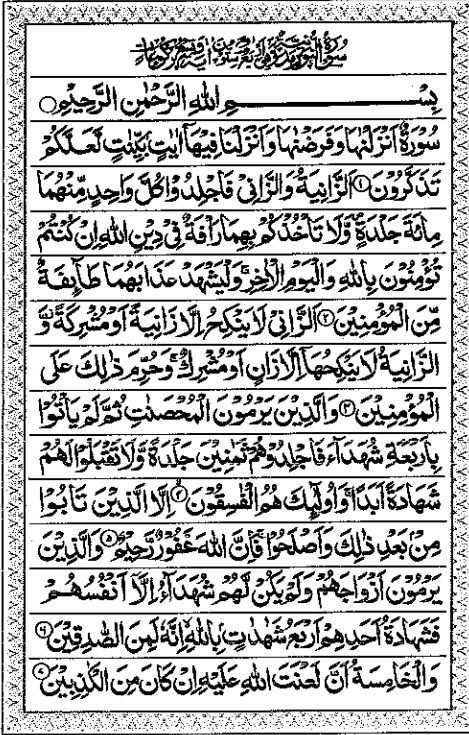 سُوْرَةُ النُّوْرِ مَدَنِيَّةٌ وَّهِيَ اَرْبَعٌ وَّسِتُّوْنَ اٰيَةً وَّتِسْعُ رُكُوْعَاتٍ
بِسْمِ اللهِ الرَّحْمٰنِ الرَّحِيْمِ
سُوْرَةٌ اَنْزَلْنٰهَا وَفَرَضْنٰهَا وَاَنْزَلْنَا فِيْهَاۤ اٰيٰتٍۭ بَيِّنٰتٍ لَّعَلَّكُمْ
تَذَكَّرُوْنَ ۝١ اَلزَّانِيَةُ وَالزَّانِيْ فَاجْلِدُوْا كُلَّ وَاحِدٍ مِّنْهُمَا
مِائَةَ جَلْدَةٍ ۪ وَّلَا تَاْخُذْكُمْ بِهِمَا رَاْفَةٌ فِيْ دِيْنِ اللهِ اِنْ كُنْتُمْ
تُؤْمِنُوْنَ بِاللهِ وَالْيَوْمِ الْاٰخِرِ ۚ وَلْيَشْهَدْ عَذَابَهُمَا طَآىِٕفَةٌ
مِّنَ الْمُؤْمِنِيْنَ ۝٢ اَلزَّانِيْ لَا يَنْكِحُ اِلَّا زَانِيَةً اَوْ مُشْرِكَةً ؗ وَّ
الزَّانِيَةُ لَا يَنْكِحُهَاۤ اِلَّا زَانٍ اَوْ مُشْرِكٌ ۚ وَحُرِّمَ ذٰلِكَ عَلَى
الْمُؤْمِنِيْنَ ۝٣ وَالَّذِيْنَ يَرْمُوْنَ الْمُحْصَنٰتِ ثُمَّ لَمْ يَاْتُوْا
بِاَرْبَعَةِ شُهَدَآءَ فَاجْلِدُوْهُمْ ثَمٰنِيْنَ جَلْدَةً وَّلَا تَقْبَلُوْا لَهُمْ
شَهَادَةً اَبَدًا ۚ وَاُولٰٓىِٕكَ هُمُ الْفٰسِقُوْنَ ۝٤ اِلَّا الَّذِيْنَ تَابُوْا
مِنْۢ بَعْدِ ذٰلِكَ وَاَصْلَحُوْا ۚ فَاِنَّ اللهَ غَفُوْرٌ رَّحِيْمٌ ۝٥ وَالَّذِيْنَ
يَرْمُوْنَ اَزْوَاجَهُمْ وَلَمْ يَكُنْ لَّهُمْ شُهَدَآءُ اِلَّاۤ اَنْفُسُهُمْ
فَشَهَادَةُ اَحَدِهِمْ اَرْبَعُ شَهٰدٰتٍۭ بِاللهِ ۙ اِنَّهٗ لَمِنَ الصّٰدِقِيْنَ ۝٦
وَالْخَامِسَةُ اَنَّ لَعْنَتَ اللهِ عَلَيْهِ اِنْ كَانَ مِنَ الْكٰذِبِيْنَ ۝٧